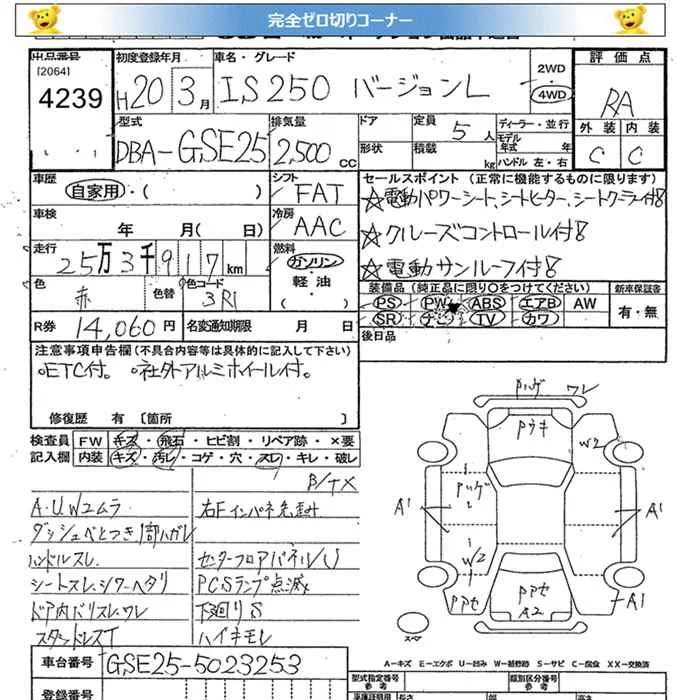 完全ゼロ切りコーナー
出品番号 初度登録年月 車名・グレード 2WD 評価点
[2064]
4239 H20 3月 IS250 バージョンL 4WD RA
外装 内装
C C
型式 排気量 ドア 定員 5人 ディーラー・並行
DBA-GSE25 2,500cc 形状 積載 kg モデル年式 年 ハンドル 左・右
車歴 シフト セールスポイント (正常に機能するものに限ります)
自家用・( ) FAT ☆電動パワーシート、シートヒーター、シートクーラー付き
車検 冷房
年 月( 日) AAC ☆クルーズコントロール付き
走行 燃料
25万3千917km ガソリン・軽油・( ) ☆電動サンルーフ付き
色 色替 色コード 装備品 (純正品に限り○をつけてください) 新車保証書
赤 3R1 PS PW ABS エアB AW 有・無
SR ナビ TV カワ
R券 14,060円 名変通知期限 月 日 後日品
注意事項申告欄 (不具合内容等は具体的に記入して下さい)
○ETC付。 ○社外アルミホイール付。
修復歴 有 [箇所 ]
検査員 FW キズ・飛石・ヒビ割・リペア跡・×要
記入欄 内装 キズ・汚レ・コゲ・穴・スレ・キレ・破レ
A.U.Wユムラ 右Fインパネ先歪み
ダッシュベとつき1部ハガレ
ハンドルスレ センターフロアパネルU
シートスレ、シワ・ヘタリ PCSランプ点滅
ドア内バリスレ、ワレ 下廻りS
スタッドレスT ハイキモレ
車台番号 GSE25-5023253
Pハゲ ワレ
Pウキ
W2
Pハゲ
A1 A1
W2
PアセA2
Pアセ A1
スペア
A-キズ E-エクボ U-凹み W-補修跡 S-サビ C-腐食 XX-交換済
型式指定番号 参考 類別区分番号 参考
自動車登録番号